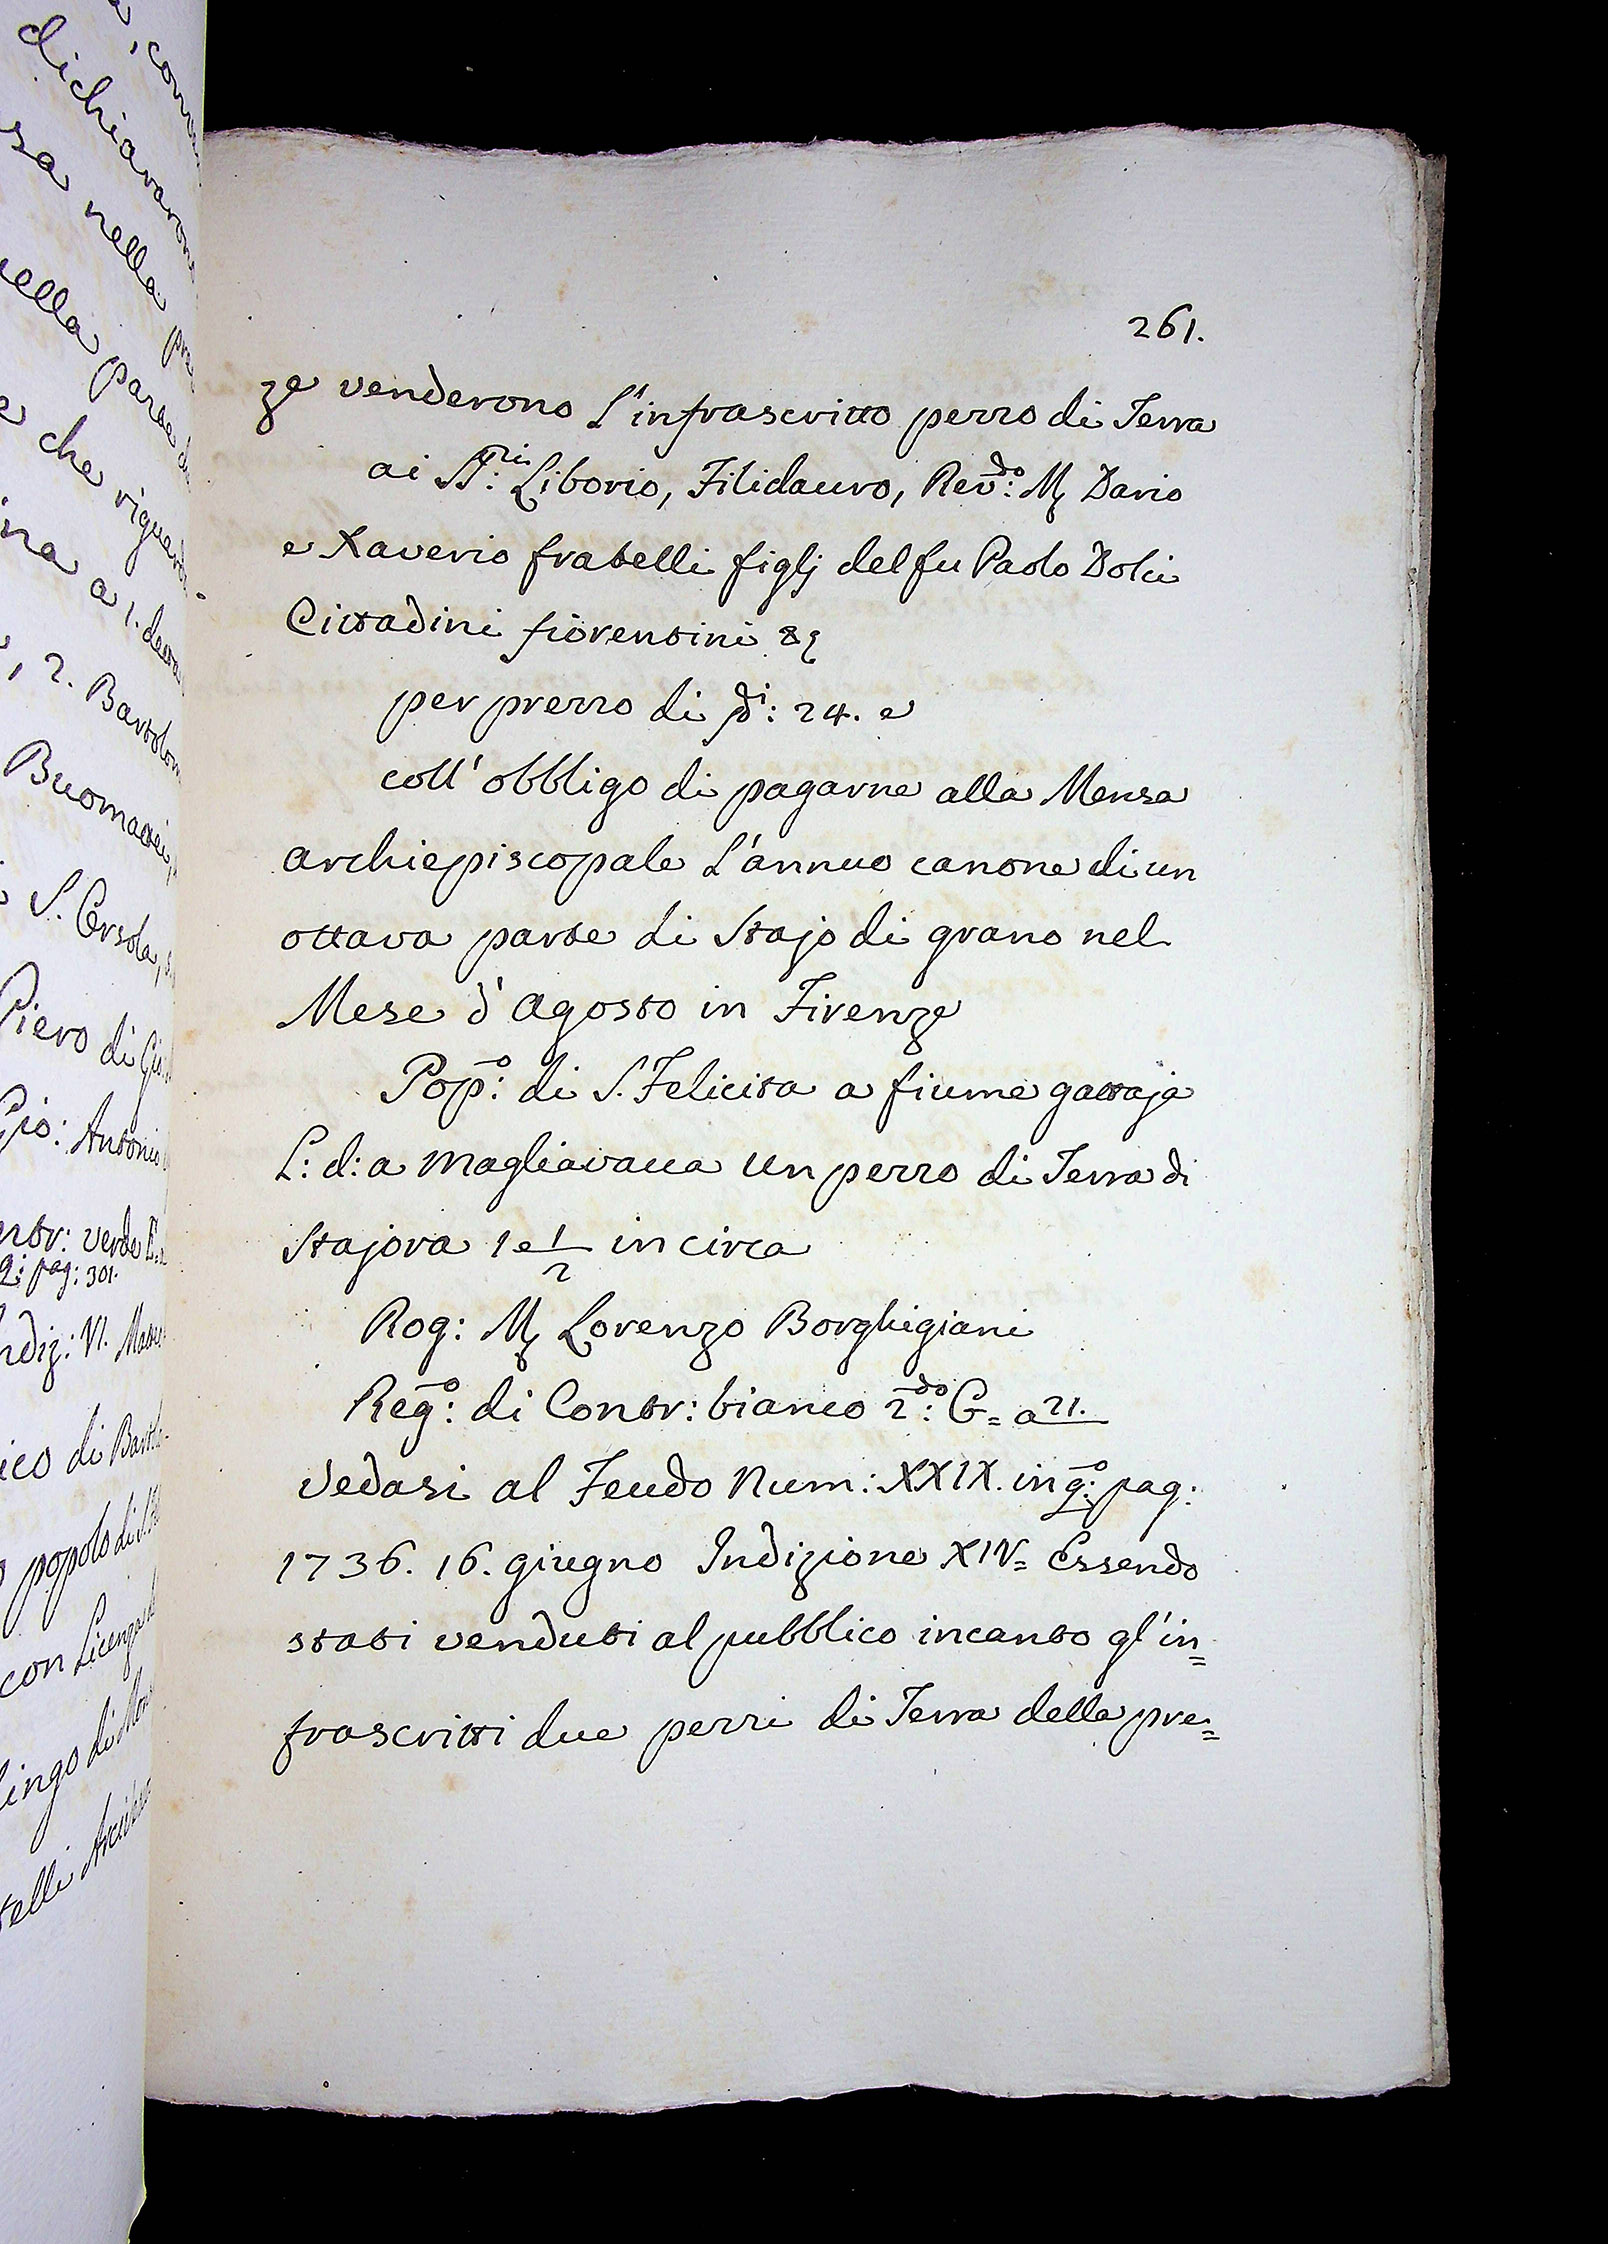 261.
ze venderono l'infrascritto pezzo di Terra
ai SS:ri Liborio, Filidauro, Rev:do M Dario
e Xaverio fratelli figlj del fu Paolo Dolci
Cittadini fiorentini &
per prezzo di di: 24. e
coll'obbligo di pagarne alla Mensa
archiepiscopale l'annuo canone di un
ottava parte di Stajo di grano nel
Mese d'agosto in Firenze
Pop:o di S. Felicita a fiume gattaja
L: d: a magliavacca un pezzo di Terra di
Stajora 1 e 1/2 in circa
Rog: M Lorenzo Borghigiani
Reg:o di Contr: bianco 2:do G= a 21.
vedasi al Feudo Num: XXIX. in q:o pag:
1736. 16. giugno Indizione XIV= Essendo
stati venduti al pubblico incanto gl'in=
frascritti due pezzi di Terra della pre=
dichiarano
sa nella
parte
che riguard
na a 1.
, 2. Bartolom
Buomattei,
S. Orsola,
Piero di
Gio: Antonio
ntr: verde
2: pag: 301.
ndiz: VI.
ico di
popolo di
con Licenza
lingo di
telli